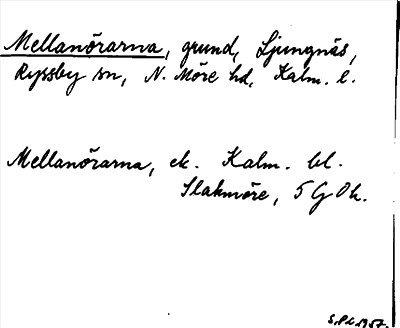 Mellanörarna, grund, Ljungnäs,
Ryssby sn, N. Möre hd, Kalm. l.
Mellanörarna, ek. Kalm. bl.
Slakmöre, 5 G Ö h.
S.P.L. 1957.